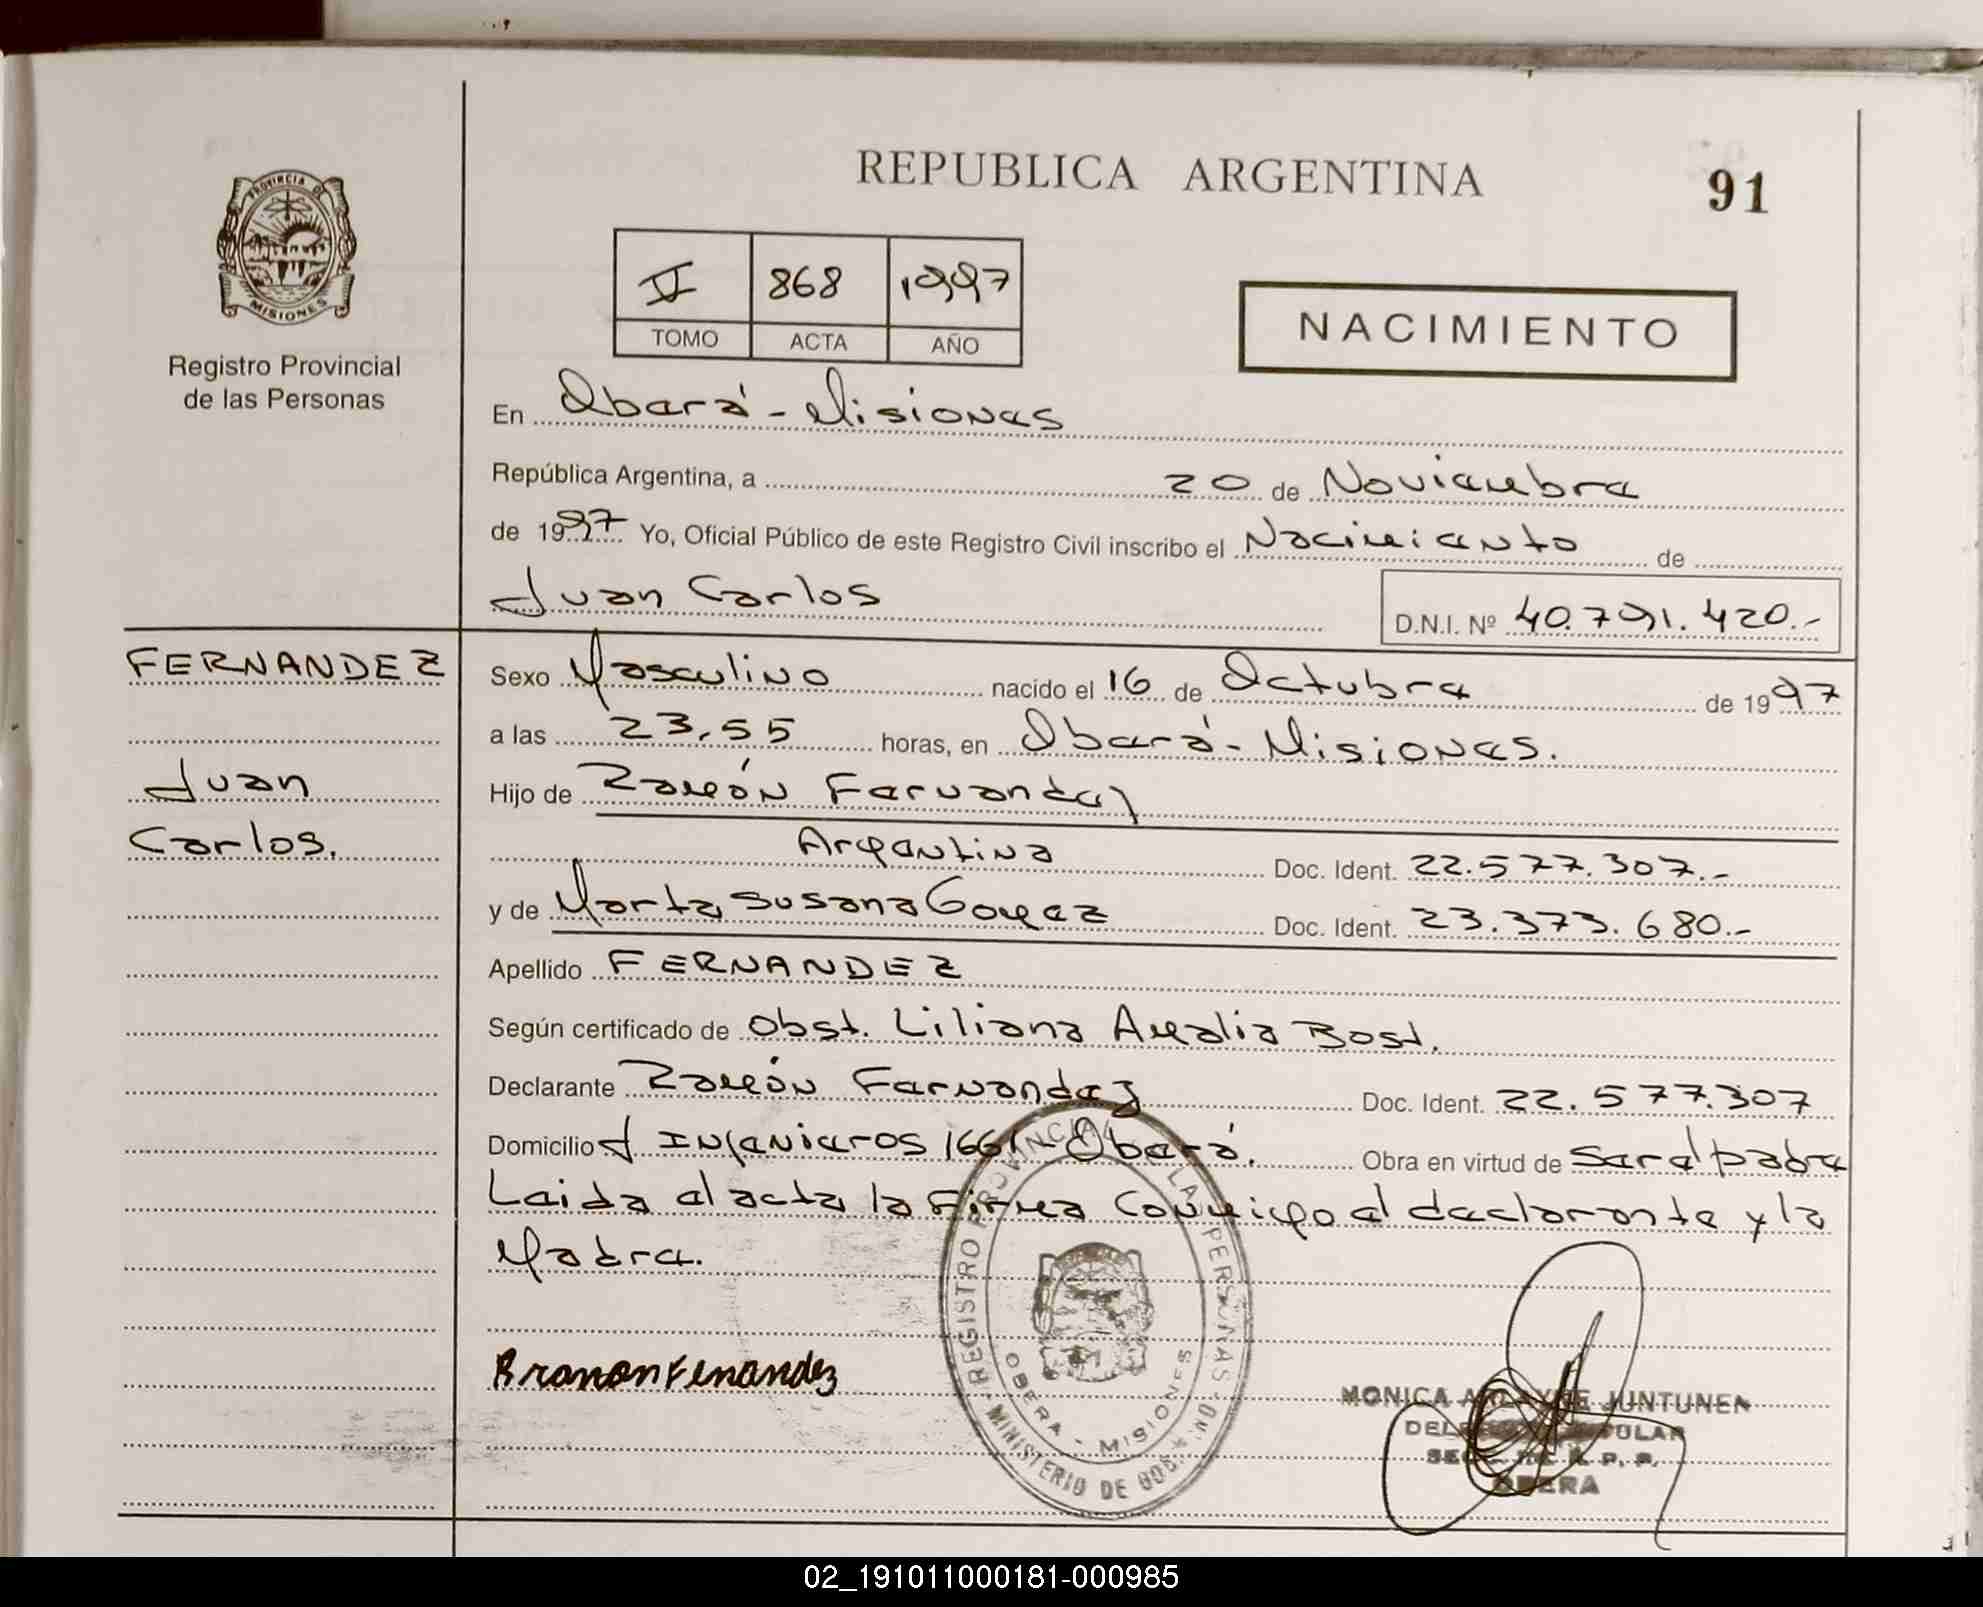 REPUBLICA ARGENTINA
91
PROVINCIA DE
MISIONES
Registro Provincial
de las Personas
II 868 1997
TOMO ACTA AÑO
NACIMIENTO
En Oberá - Misiones
República Argentina, a 20 de Noviembre
de 1997 Yo, Oficial Público de este Registro Civil inscribo el Nacimiento de
Juan Carlos
D.N.I. Nº 40.791.420.-
FERNANDEZ
Juan
Carlos.
Sexo Masculino nacido el 16 de Octubre de 1997
a las 23,55 horas, en Oberá - Misiones.
Hijo de Ramón Fernandez
Argentina Doc. Ident. 22.577.307.-
y de Marta Susana Gomez Doc. Ident. 23.373.680.-
Apellido FERNANDEZ
Según certificado de Obst. Liliana Amalia Bost.
Declarante Ramón Fernandez Doc. Ident. 22.577.307
Domicilio J Ingenieros 1661 - Oberá. Obra en virtud de Ser el padre
Leida el acta la Firma Conmigo el declarante y la
Madre.
REGISTRO PROVINCIAL LAS PERSONAS
OBERA - MISIONES
MINISTERIO DE GOB.
R ramon Fenandez
MONICA JUNTUNEN
OBERA
02_191011000181-000985